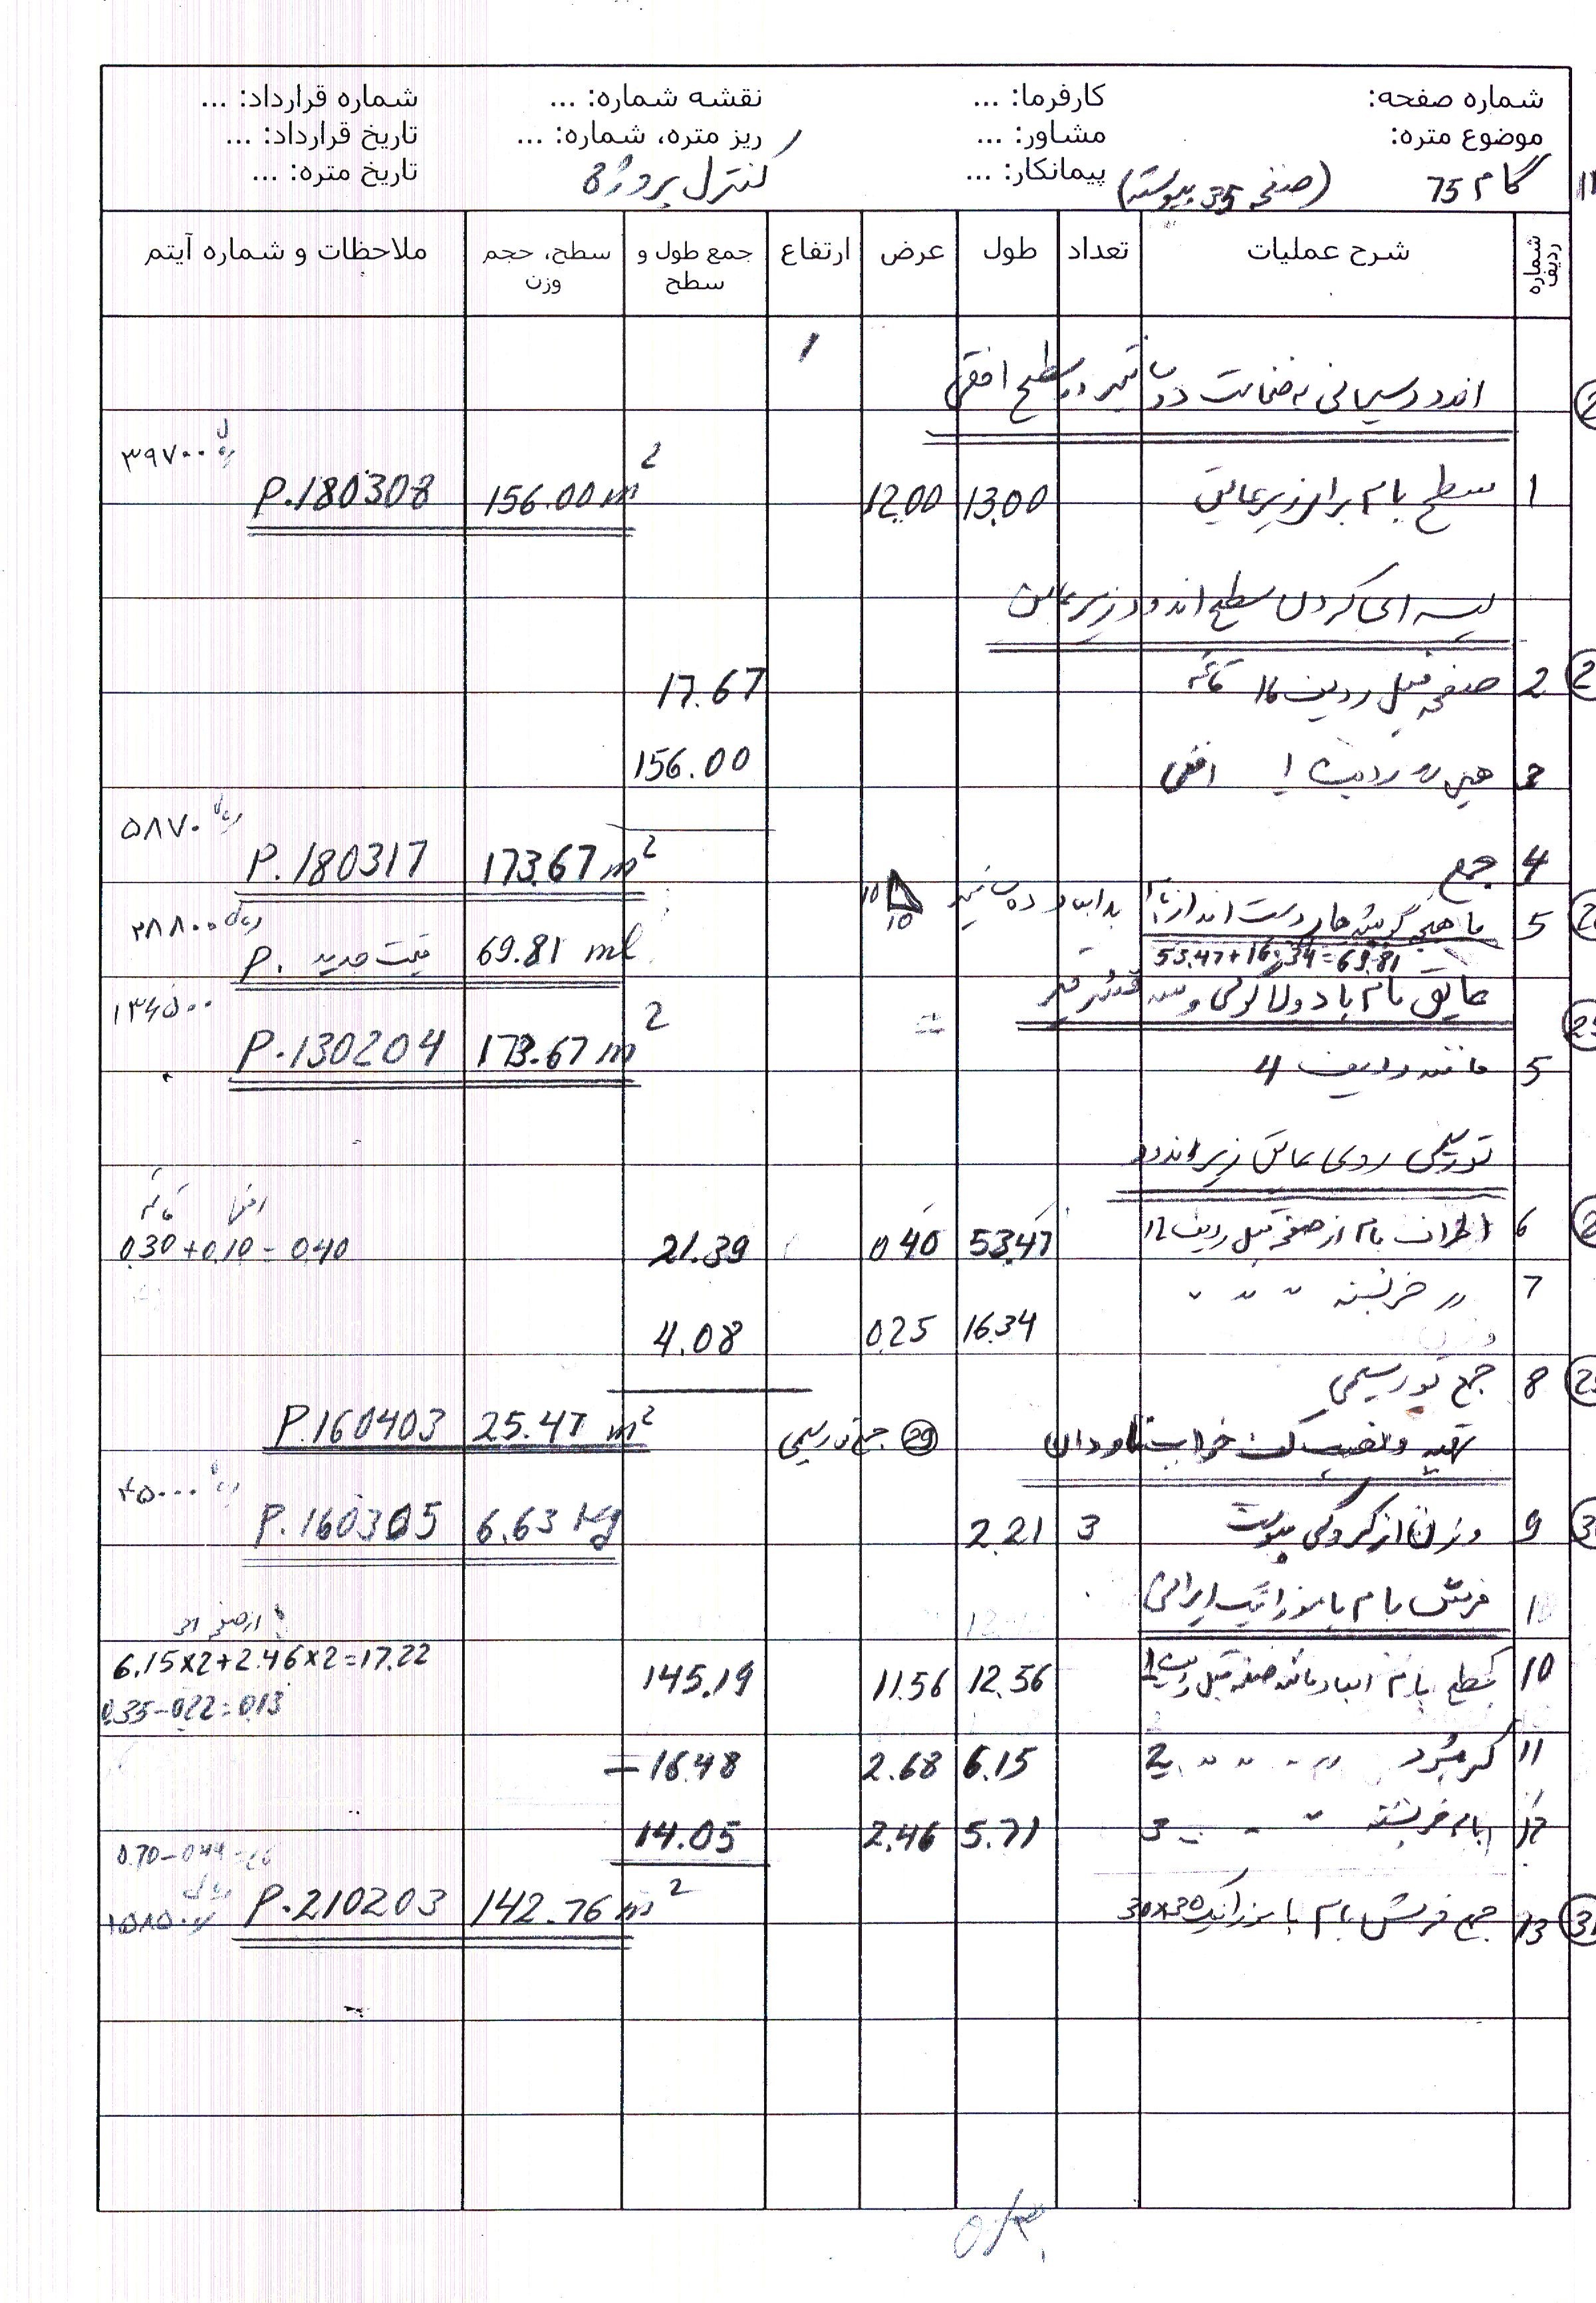 شماره صفحه: کارفرما: ... نقشه شماره: ... شماره قرارداد: ...
موضوع متره: مشاور: ... ریز متره، شماره: ... تاریخ قرارداد: ...
گام 75 (صفحه 35 پیوسته) پیمانکار: ... کنترل پروژه تاریخ متره: ...
شماره ردیف شرح عملیات تعداد طول عرض ارتفاع جمع طول و سطح سطح، حجم وزن ملاحظات و شماره آیتم
اندود سیمانی به ضخامت دو سانتیمتر در سطح افقی
۳۹۷۰۰ ریال
1 سطح بام برای زیر عایق 13.00 12.00 156.00 m2 P.180308
لیسه ای کردن سطح اندود زیر عایق
2 صفحه قبل ردیف 16 قائم 17.67
3 همین ردیف 1 افقی 156.00
۵۸۷۰ ریال
4 جمع 173.67 m2 P.180317
5 ماهیچه گوشه های دست انداز به ابعاد ده سانتیمتر 10 10 ۲۸۸۰۰ ریال
53.47+16.34=69.81 69.81 ml قیمت جدید P.
عایق بام با دولا گونی و سه قشر قیر ۱۳۴۵۰۰
5 مانند ردیف 4 173.67 m2 P.130204
توری روی عایق زیر اندود
افقی قائم
6 اطراف بام از صفحه قبل ردیف 12 53.47 0.40 21.39 0.30+0.10=0.40
7 در خرپشته " " " 16.34 0.25 4.08
8 جمع تور سیمی
25.47 m2 P.160403
تهیه و نصب کف خواب ناودان (29) جمع تور سیمی
۴۵۰۰۰ ریال
9 وزن از کروکی پیوست 3 2.21 6.63 kg P.160305
فرش بام با موزائیک ایرانی
از صفحه
6.15×2+2.46×2=17.22
10 سطح بام ابعاد مانند صفحه قبل ردیف 1 12.56 11.56 145.19
0.35-0.22=0.13
11 کسر میشود " " " 2 6.15 2.68 -16.48
12 بام خرپشته " " " 3 5.71 2.46 14.05
13 جمع فرش بام با موزائیک 30×30 142.76 m2 P.210203